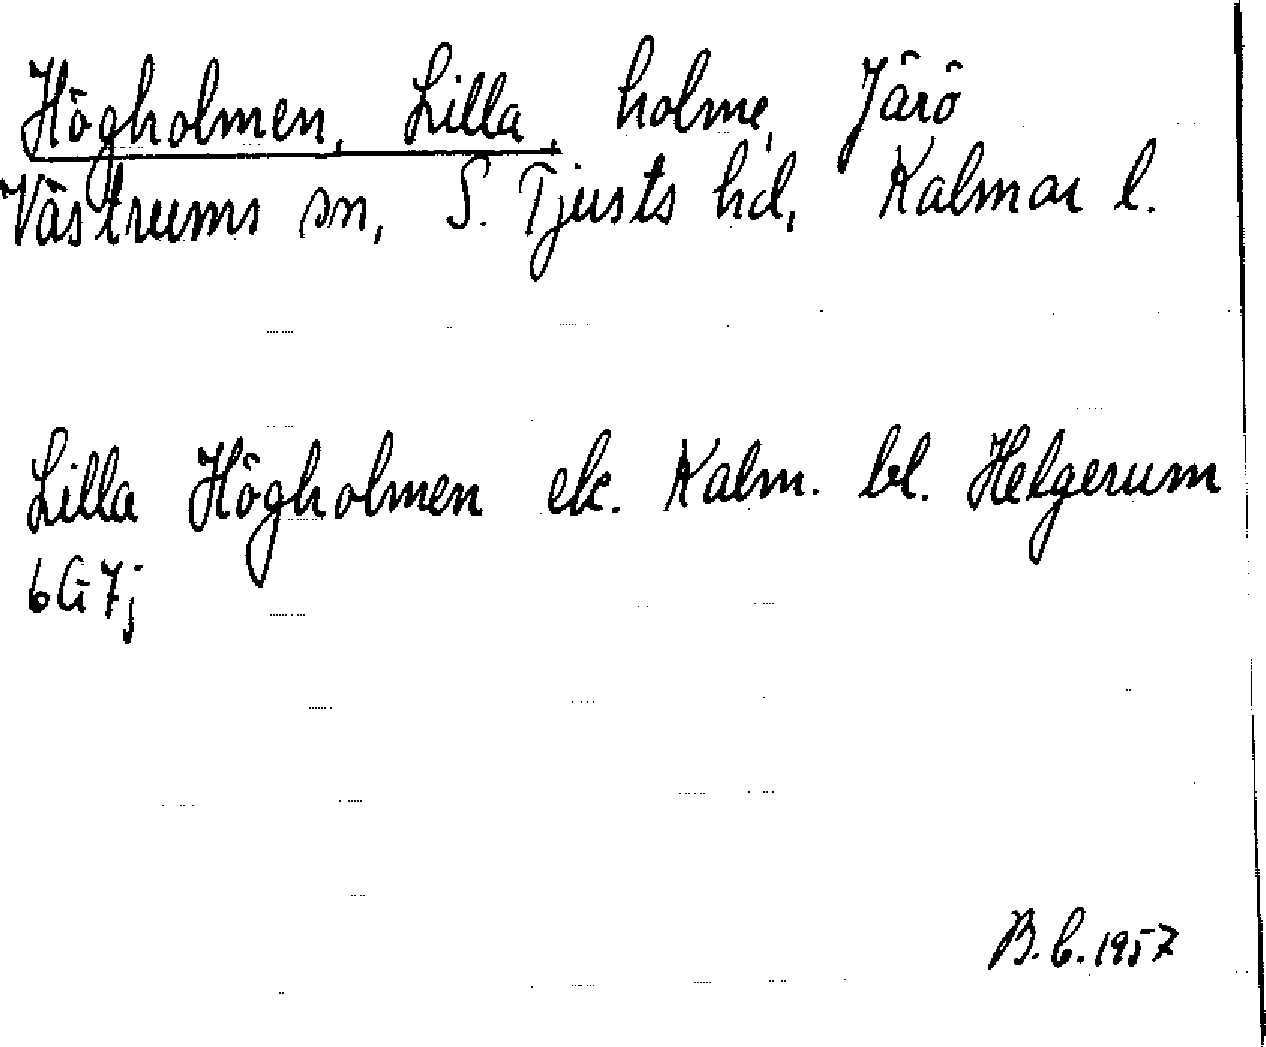 Högholmen, Lilla, holme, Järö
Västrums sn, S. Tjusts hd, Kalmar l.
Lilla Högholmen ek. Kalm. bl. Helgerum
6G7j
B.b. 1957